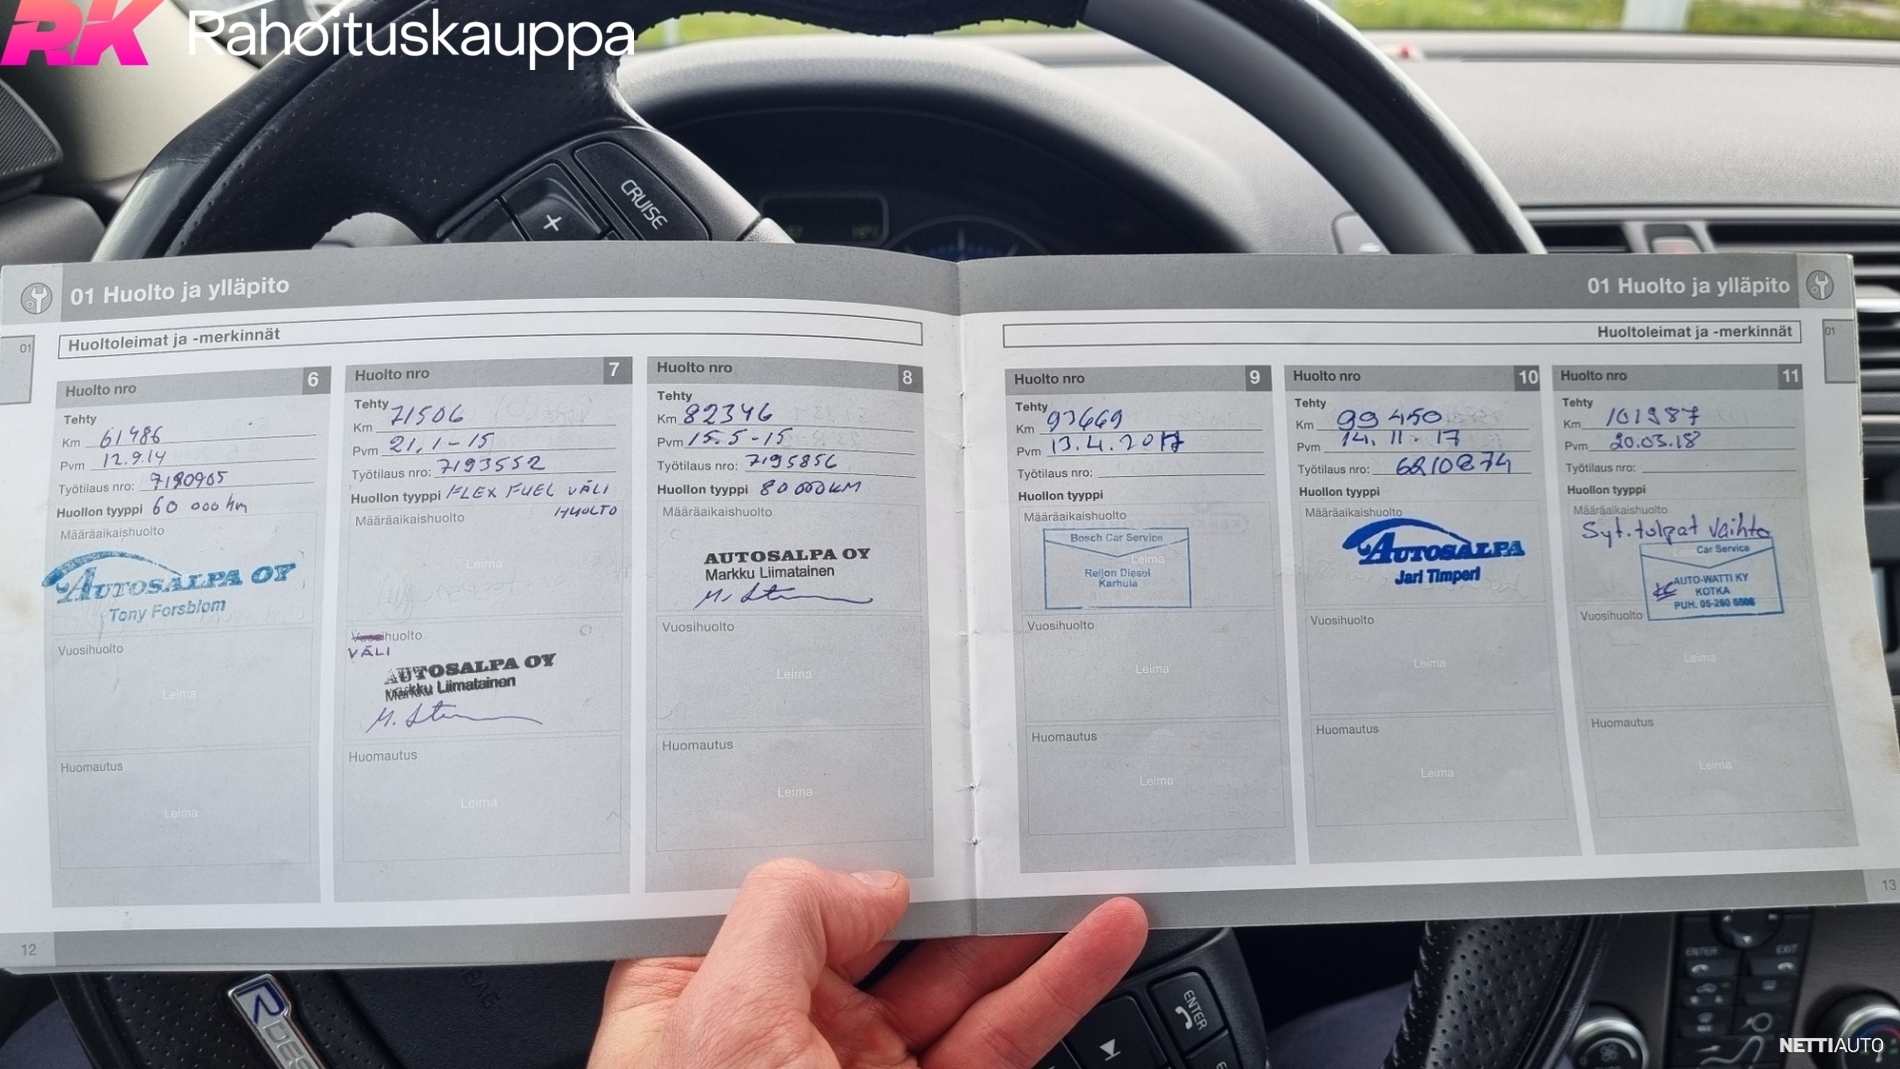 RK Rahoituskauppa
CRUISE
+
01 Huolto ja ylläpito
Huoltoleimat ja -merkinnät
01
Huolto nro 6
Tehty
Km 61486
Pvm 12.9.14
Työtilaus nro: 7190905
Huollon tyyppi 60 000 km
Määräaikaishuolto
AUTOSALPA OY
Tony Forsblom
Vuosihuolto
Leima
Huomautus
Leima
12
Huolto nro 7
Tehty
Km 71506
Pvm 21.1-15
Työtilaus nro: 7193552
Huollon tyyppi FLEX FUEL VÄLI
HUOLTO
Määräaikaishuolto
Leima
Vuosihuolto
VÄLI
AUTOSALPA OY
Markku Liimatainen
Huomautus
Leima
Huolto nro 8
Tehty
Km 82346
Pvm 15.5-15
Työtilaus nro: 7195856
Huollon tyyppi 80 000 KM
Määräaikaishuolto
AUTOSALPA OY
Markku Liimatainen
Vuosihuolto
Leima
Huomautus
Leima
01 Huolto ja ylläpito
Huoltoleimat ja -merkinnät
01
Huolto nro 9
Tehty
Km 93669
Pvm 13.4.2017
Työtilaus nro:
Huollon tyyppi
Määräaikaishuolto
Bosch Car Service
Leima
Reijon Diesel
Karhula
Vuosihuolto
Leima
Huomautus
Leima
Huolto nro 10
Tehty
Km 99450
Pvm 14.11-17
Työtilaus nro: 6210874
Huollon tyyppi
Määräaikaishuolto
AUTOSALPA
Jari Timperi
Vuosihuolto
Leima
Huomautus
Leima
Huolto nro 11
Tehty
Km 101987
Pvm 20.03.18
Työtilaus nro:
Huollon tyyppi
Määräaikaishuolto
Syt.tulpat vaihto
Car Service
AUTO-WATTI KY
KOTKA
PUH. 05-260 6506
Vuosihuolto
Leima
Huomautus
Leima
13
ENTER
EXIT
ENTER
R DES
NETTIAUTO